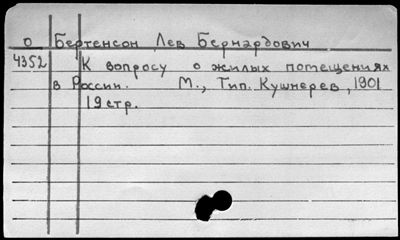 о Бертенсон Лев Бернардович
4352 К вопросу о жилых помещениях
в России. М., Тип. Кушнерев, 1901
19 стр.